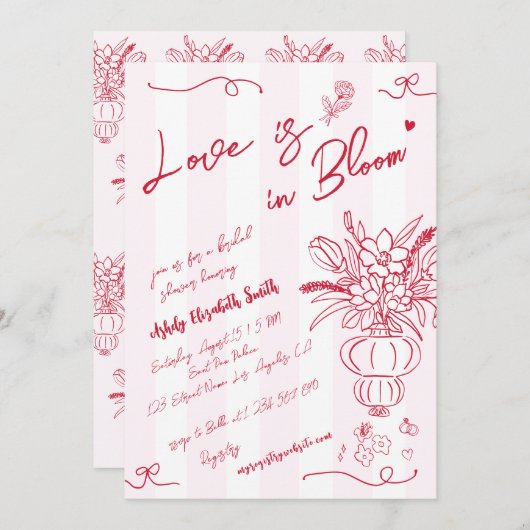 Love is
in Bloom
join us for a bridal
shower honoring
Ashdy Elizabeth Smith
Saturday August 15 | 5 PM
Sant Duo Palace
123 Street Name, Los Angeles, CA
rsvp to Bella at 1 234 567 890
Registry
myregistrywebsite.com